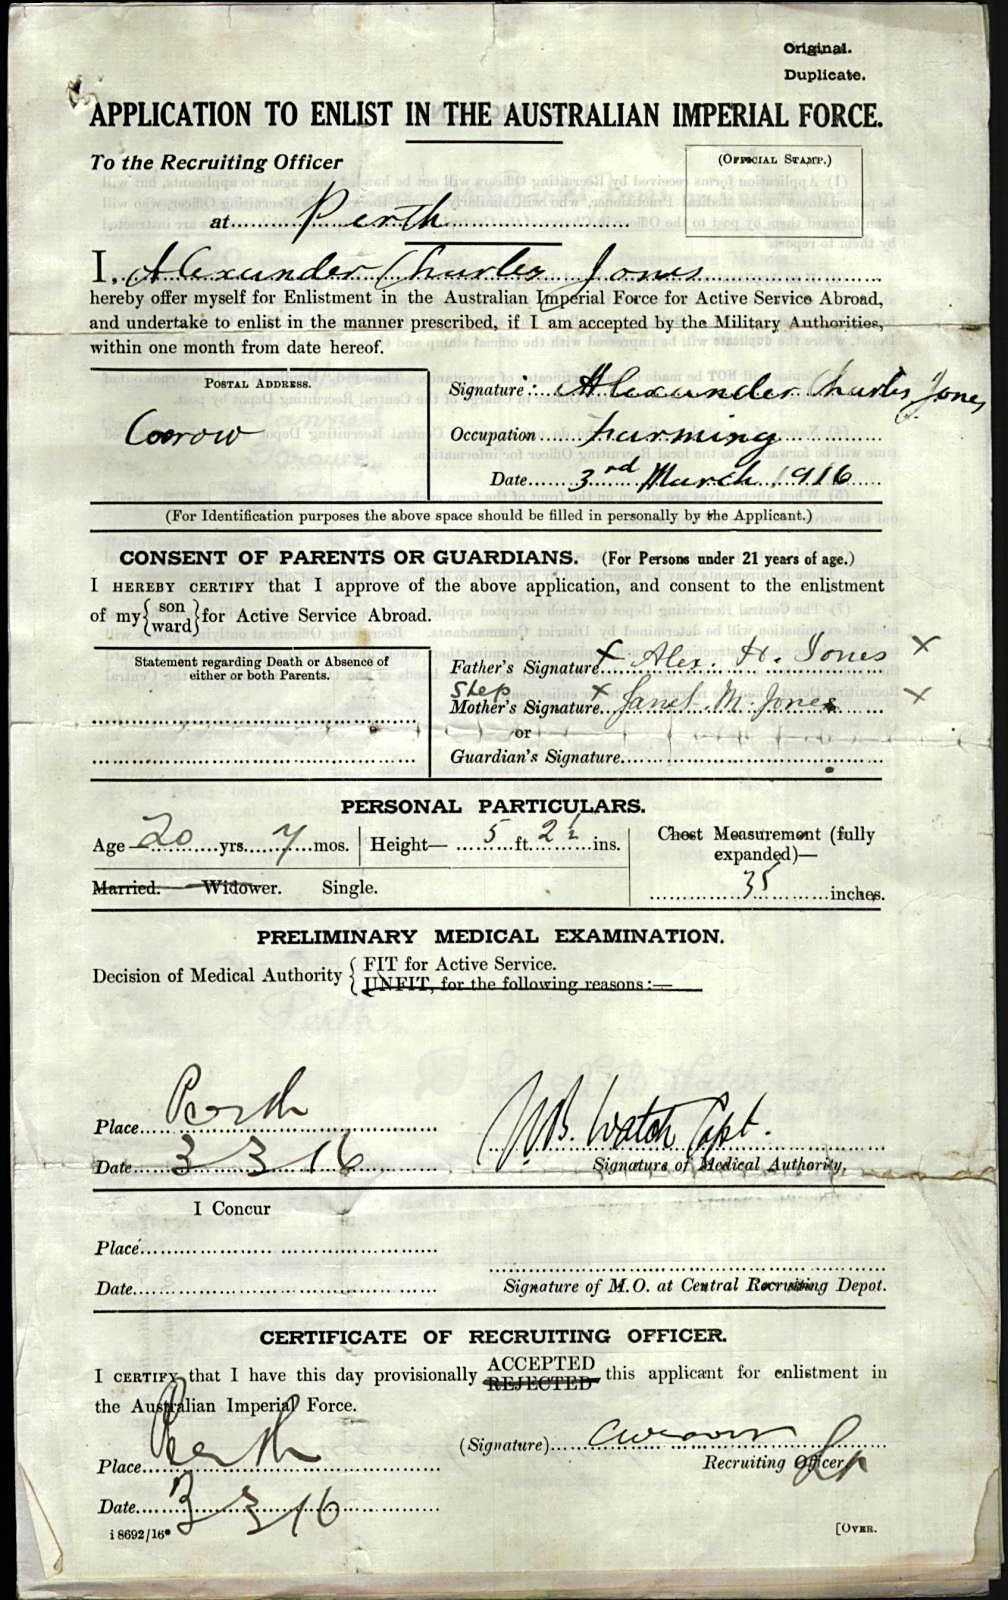 Original.
Duplicate.
APPLICATION TO ENLIST IN THE AUSTRALIAN IMPERIAL FORCE.
To the Recruiting Officer
(OFFICIAL STAMP.)
at Perth
I, Alexander Charles Jones
hereby offer myself for Enlistment in the Australian Imperial Force for Active Service Abroad,
and undertake to enlist in the manner prescribed, if I am accepted by the Military Authorities,
within one month from date hereof.
POSTAL ADDRESS.
Coorow
Signature: Alexander Charles Jones
Occupation farming
Date 3rd March 1916
(For Identification purposes the above space should be filled in personally by the Applicant.)
CONSENT OF PARENTS OR GUARDIANS. (For Persons under 21 years of age.)
I HEREBY CERTIFY that I approve of the above application, and consent to the enlistment
of my {son ward} for Active Service Abroad.
Statement regarding Death or Absence of
either or both Parents.
Father's Signature X Alex. H. Jones X
Step
Mother's Signature X Janet M. Jones X
or
Guardian's Signature
PERSONAL PARTICULARS.
Age 20 yrs. 7 mos. Height— 5 ft. 2½ ins.
Chest Measurement (fully
expanded)—
35 inches.
Married. Widower. Single.
PRELIMINARY MEDICAL EXAMINATION.
Decision of Medical Authority { FIT for Active Service.
UNFIT, for the following reasons:—
Place Perth
Date 3 3 16
Watch Capt.
Signature of Medical Authority.
I Concur
Place
Date
Signature of M.O. at Central Recruiting Depot.
CERTIFICATE OF RECRUITING OFFICER.
I CERTIFY that I have this day provisionally ACCEPTED REJECTED this applicant for enlistment in
the Australian Imperial Force.
Place Perth
(Signature)
Recruiting Officer
Date 3 3 16
i 8692/16*
[OVER.